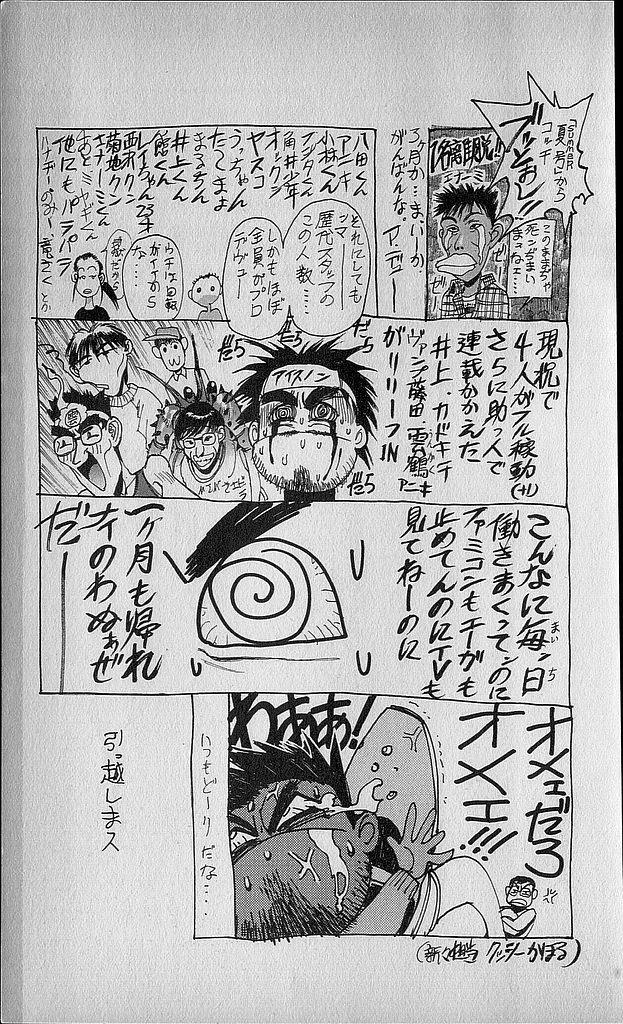 「SUMMER
夏号」から
コッチ
ブッとおし!!
このままぢゃ
死ンぢまい
まっねェ…
3ヶ月か…まァいーか
がんばんな。
それにしても
ンマー
歴代スタッフの
この人数…
しかもほぼ
全員がプロ
デヴュー
八田くん
アニキ
小林くん
フジタくん
角井少年
オックン
ヤスコ
うっちゃん
たてしまよ
まるちん
井上くん
館くん
レイちゃん
西ホクン
菊地クン
ナナーミくん
あとミヤギくん
他にもパラパラ
現状で
4人がフル稼動
(+1)
さらに助っ人で
連載かかえた
井上カドキチ
ヴァンプ藤田・雲鶴
がリリーフIN
アイスノン
だらだら
だら
だら
だら
こんなに毎ン日
まいち
働きまくってンのに
ファミコンもエーがも
止めてんのにTVも
見てねーのに
一ヶ月も帰れ
ナイのわぬぁぜ
だー
オメェだろ
オメェ!!!
わああぁ!
いつもどーりだな…
引っ越しまス
(新々担当 クッシーかほる)